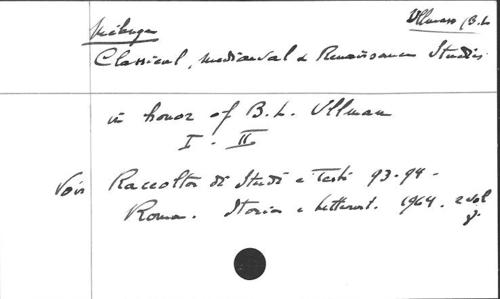 Mélanges Ullman, B.L.
Classical, mediaeval & Renaissance Studies
in honor of B.L. Ullman
I - II
Voir Raccolta di Studi e Testi 93-94 -
Roma. Storia e Letterat. 1964. 2 vol